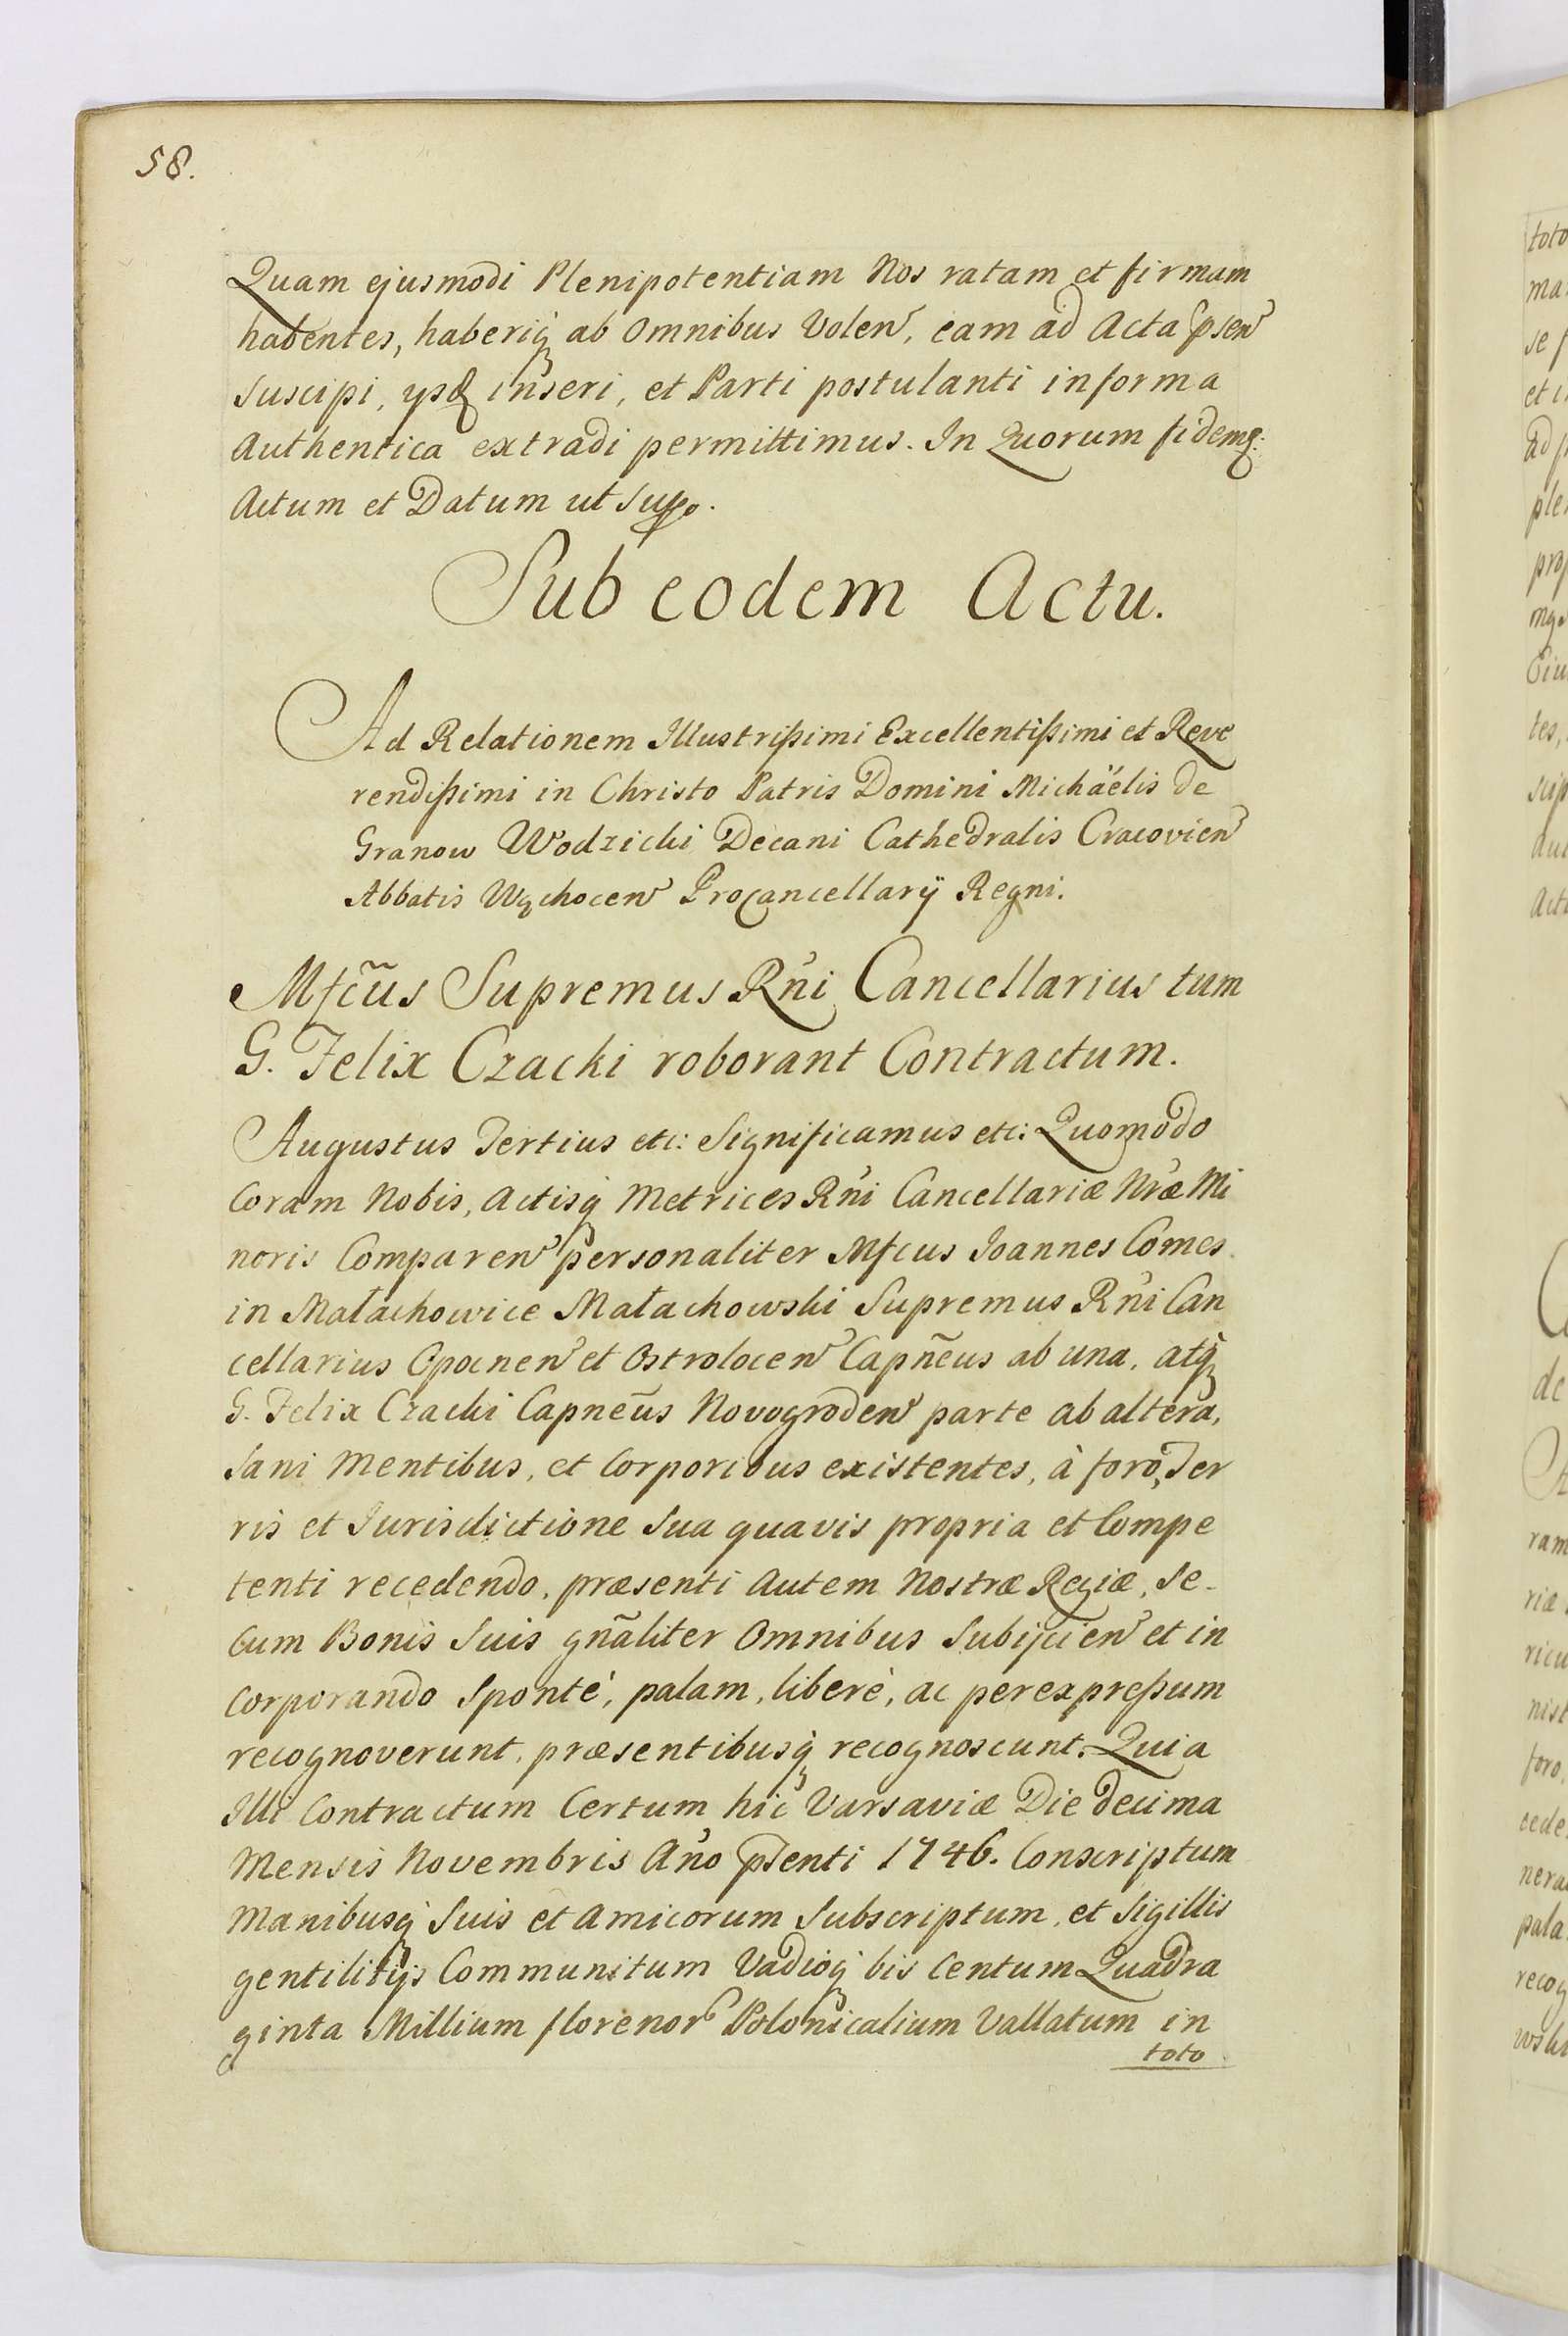 58.
Quam ejusmodi Plenipotentiam Nos ratam et firmam
habentes, haberiq ab Omnibus Volen, eam ad Acta psen
suscipi, ysq inseri, et Parti postulanti in forma
Authentica extradi permittimus. In Quorum fidemq:
Actum et Datum ut sup.
Sub eodem Actu.
Ad Relationem Illustrißimi Excellentißimi et Reve
rendißimi in Christo Patris Domini Michäelis de
Granow Wodzicki Decani Cathedralis Cracovien
Abbatis Wąchocen Procancellarÿ Regni.
Mfcũs Supremus Rni Cancellarius tum
G. Felix Czacki roborant Contractum.
Augustus Tertius etc: Significamus etc: Quomodo
Coram Nobis, Actisq Metrices Rni Cancellariæ Nræ Mi
noris Comparen personaliter Mfcus Joannes Comes
in Małachowice Małachowski Supremus Rni Can
cellarius Opocnen et Ostrolocen Capñeus ab una, atq
G. Felix Czacki Capneũs Novogroden parte ab altera,
Sani Mentibus, et Corporibus existentes, à foro, Ter
ris et Jurisdictione Sua quavis propria et Compe
tenti recedendo, præsenti Autem Nostræ Regiæ, Se-
Cum Bonis Suis gñaliter Omnibus Subijcien et in
Corporando Sponté, palam, liberè, ac per expreßum
recognoverunt, præsentibusq recognoscunt. Quia
Illi Contractum Certum hic Varsaviæ Die decima
Mensis Novembris Año psenti 1746. Conscriptum
Manibusq Suis et Amicorum Subscriptum, et Sigillis
gentilitijs Communitum Vadioq bis Centum Quadra
ginta Millium florenor Polonicalium Vallatum in
toto